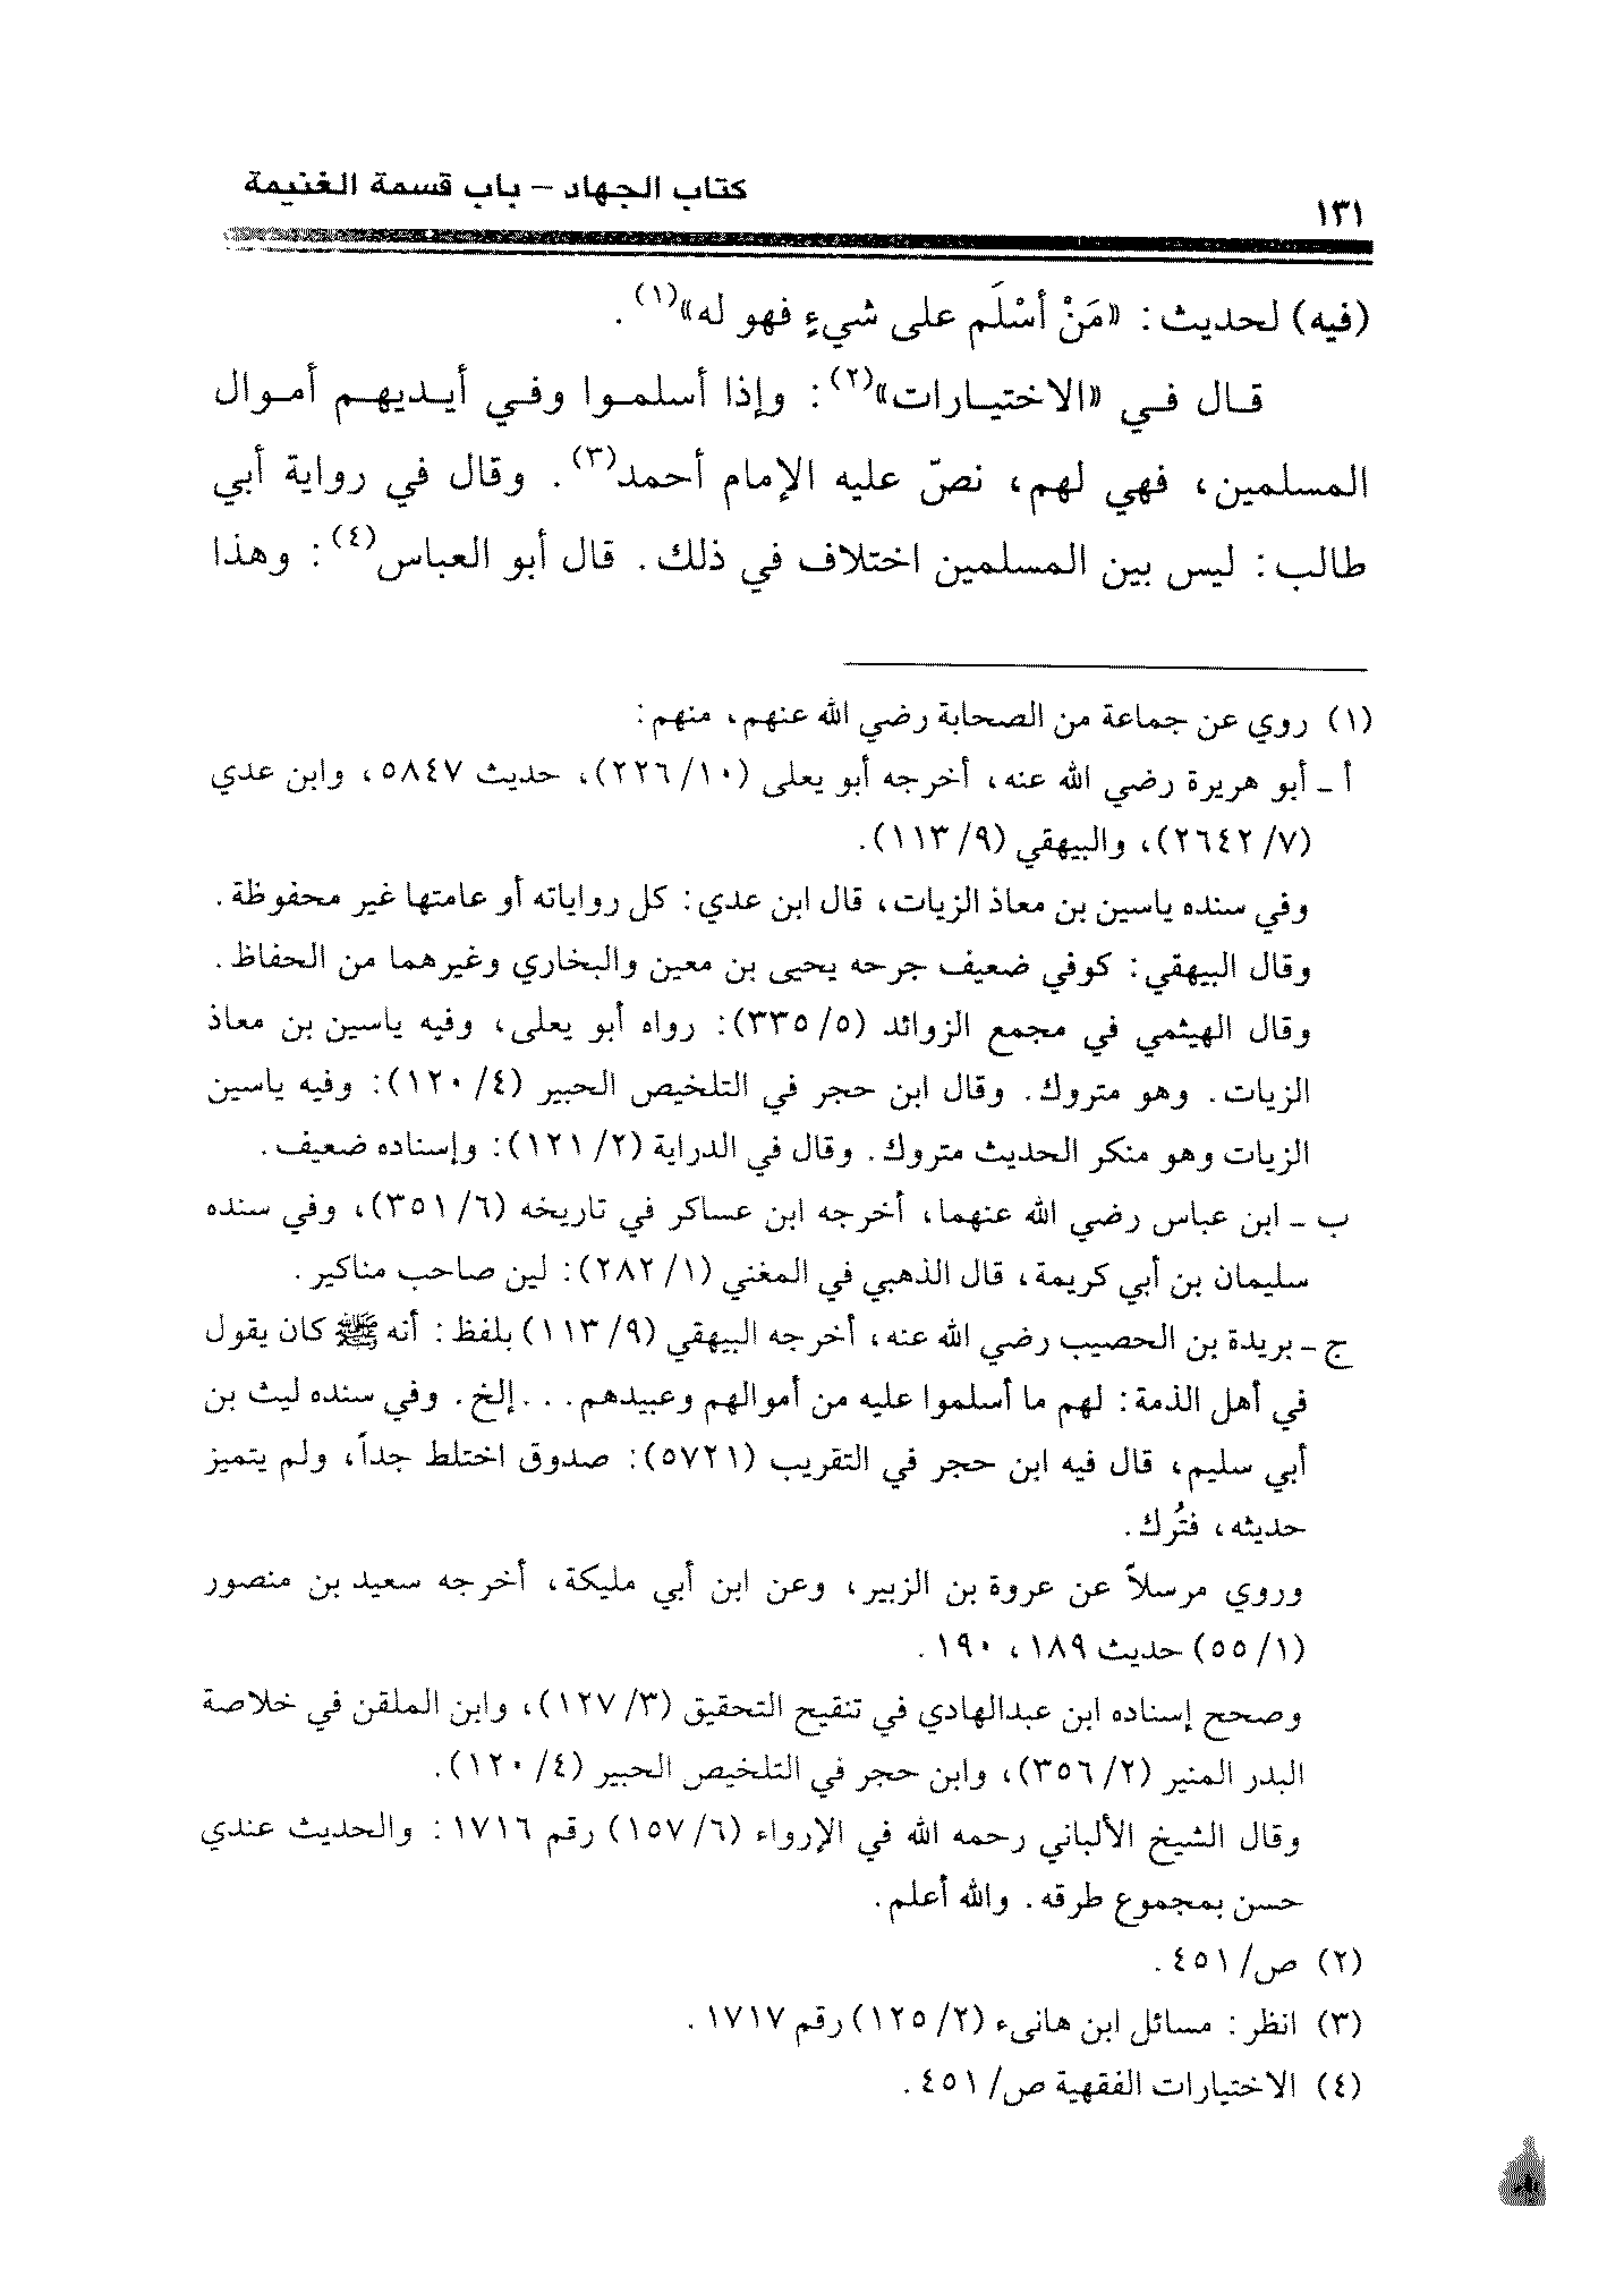 كتاب الجهاد – باب قسمة الغنيمة
١٣١
(فيه) لحديث: «مَنْ أسْلَم على شيءٍ فهو له»(١).
قال في «الاختيارات»(٢): وإذا أسلموا وفي أيديهم أموال
المسلمين، فهي لهم، نصّ عليه الإمام أحمد(٣). وقال في رواية أبي
طالب: ليس بين المسلمين اختلاف في ذلك. قال أبو العباس(٤): وهذا
(١) روي عن جماعة من الصحابة رضي الله عنهم، منهم:
أ ـ أبو هريرة رضي الله عنه، أخرجه أبو يعلى (١٠/ ٢٢٦)، حديث ٥٨٤٧، وابن عدي
(٧/ ٢٦٤٢)، والبيهقي (٩/ ١١٣).
وفي سنده ياسين بن معاذ الزيات، قال ابن عدي: كل رواياته أو عامتها غير محفوظة.
وقال البيهقي: كوفي ضعيف جرحه يحيى بن معين والبخاري وغيرهما من الحفاظ.
وقال الهيثمي في مجمع الزوائد (٥/ ٣٣٥): رواه أبو يعلى، وفيه ياسين بن معاذ
الزيات. وهو متروك. وقال ابن حجر في التلخيص الحبير (٤/ ١٢٠): وفيه ياسين
الزيات وهو منكر الحديث متروك. وقال في الدراية (٢/ ١٢١): وإسناده ضعيف.
ب ـ ابن عباس رضي الله عنهما، أخرجه ابن عساكر في تاريخه (٦/ ٣٥١)، وفي سنده
سليمان بن أبي كريمة، قال الذهبي في المغني (١/ ٢٨٢): لين صاحب مناكير.
ج ـ بريدة بن الحصيب رضي الله عنه، أخرجه البيهقي (٩/ ١١٣) بلفظ: أنه ﷺ كان يقول
في أهل الذمة: لهم ما أسلموا عليه من أموالهم وعبيدهم... إلخ. وفي سنده ليث بن
أبي سليم، قال فيه ابن حجر في التقريب (٥٧٢١): صدوق اختلط جداً، ولم يتميز
حديثه، فتُرك.
وروي مرسلاً عن عروة بن الزبير، وعن ابن أبي مليكة، أخرجه سعيد بن منصور
(١/ ٥٥) حديث ١٨٩، ١٩٠.
وصحح إسناده ابن عبدالهادي في تنقيح التحقيق (٣/ ١٢٧)، وابن الملقن في خلاصة
البدر المنير (٢/ ٣٥٦)، وابن حجر في التلخيص الحبير (٤/ ١٢٠).
وقال الشيخ الألباني رحمه الله في الإرواء (٦/ ١٥٧) رقم ١٧١٦: والحديث عندي
حسن بمجموع طرقه. والله أعلم.
(٢) ص/ ٤٥١.
(٣) انظر: مسائل ابن هانىء (٢/ ١٢٥) رقم ١٧١٧.
(٤) الاختيارات الفقهية ص/ ٤٥١.